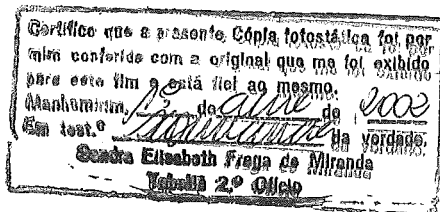 Certifico que a presente Cópia fotostática foi por
mim conferida com a original que me foi exibido
para este fim e está fiel ao mesmo.
Manhumirim, de de 2002
Em test.º da verdade.
Sandra Elisabeth Fraga de Miranda
Tabeliã 2.º Ofício